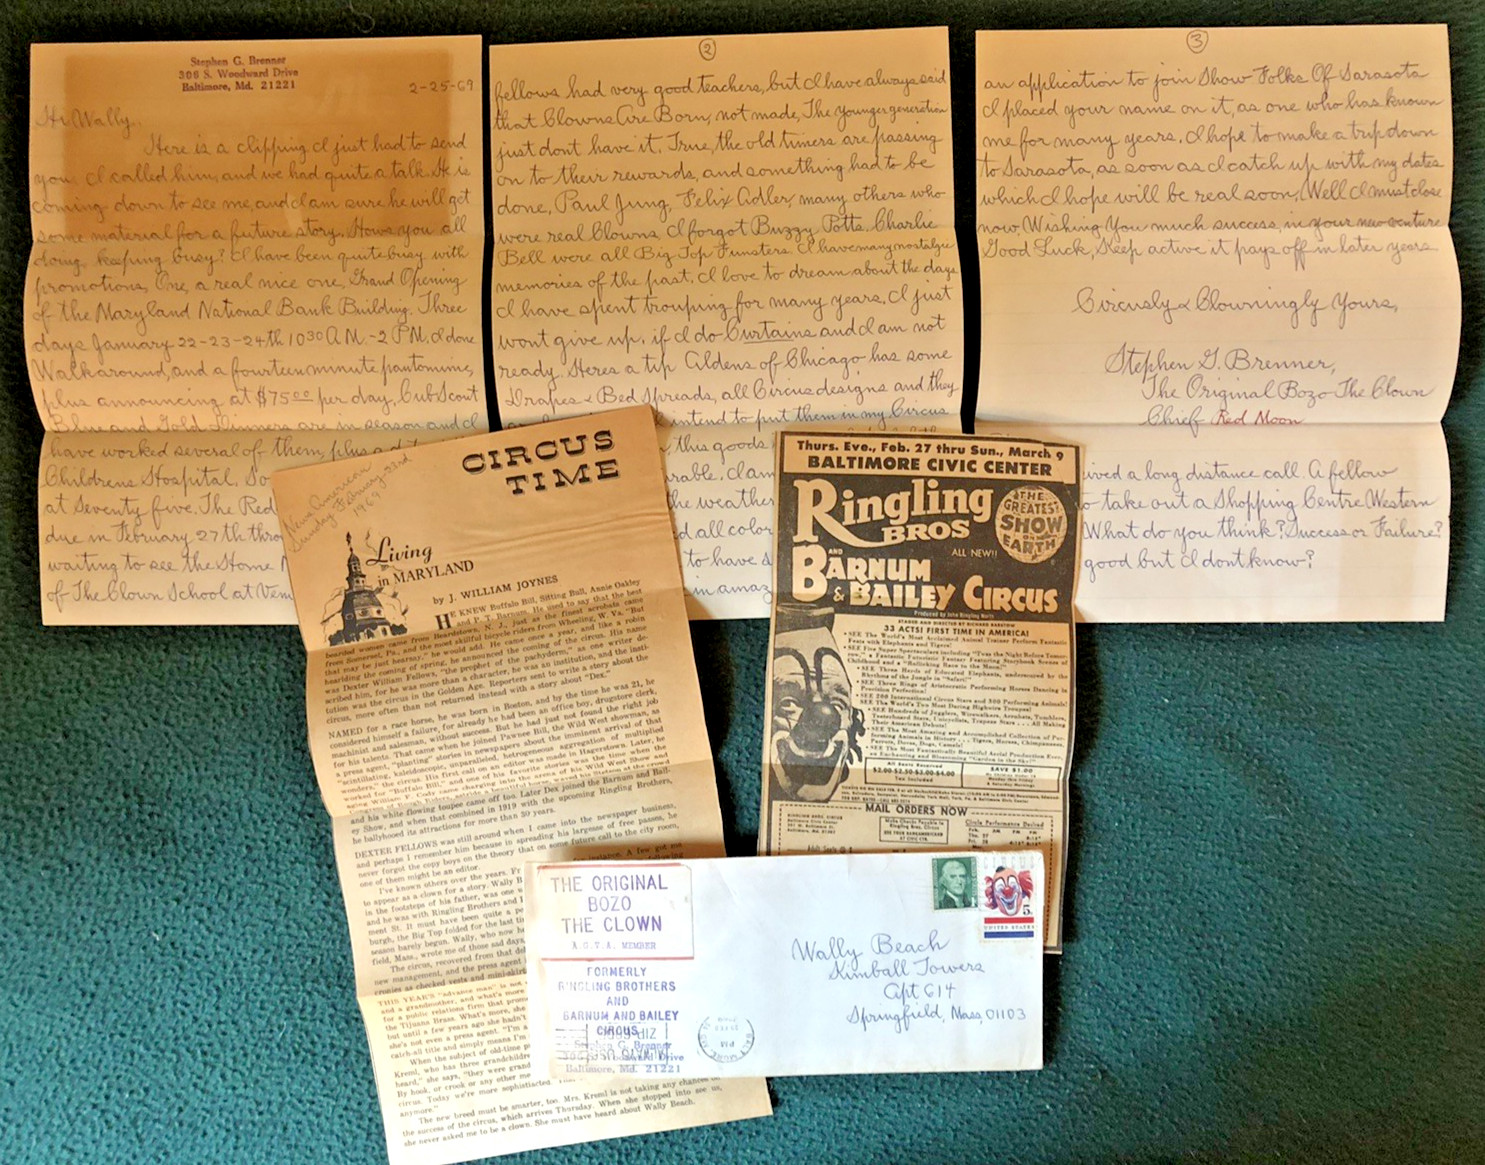 Stephen G. Brenner
306 S. Woodward Drive
Baltimore, Md. 21221
2-25-69
Hi Wally,
Here is a clipping I just had to send
you, I called him, and we had quite a talk. He is
coming down to see me, and I am sure he will get
some material for a future story. Hows you all
doing, keeping busy? I have been quite busy with
promotions, One, a real nice one, Grand Opening
of the Maryland National Bank Building. Three
days January 22-23-24th 10 30 A.M. - 2 P.M. I done
Walkaround, and a fourteen minute pantomime,
plus announcing at $75 00 per day, Cub Scout
Blue and Gold Dinners are in season and I
have worked several of them, plus a
Childrens Hospital, So
at Seventy five. The Red
due in February 27th thro
waiting to see the Home
of The Clown School at Ven
2
fellows had very good teachers, but I have always said
that Clowns Are Born, not made, The younger generation
just dont have it. True, the old timers are passing
on to their rewards, and something had to be
done, Paul Jung, Felix Adler, many others who
were real Clowns, I forgot Buzzy Potts, Charlie
Bell were all Big Top Funsters. I have many nostalgic
memories of the past. I love to dream about the days
I have spent trouping for many years. I just
wont give up, if I do Curtains and I am not
ready. Heres a tip Aldens of Chicago has some
Drapes & Bed Spreads, all Circus designs and they
intend to put them in my Circus
this goods
rable. I am
the weather
d all color
to have
in amaz
3
an application to join Show Folks Of Sarasota
I placed your name on it, as one who has known
me for many years. I hope to make a trip down
to Sarasota, as soon as I catch up with my dates
which I hope will be real soon, Well I must close
now, Wishing You much success, in your new venture
Good Luck, Keep active it pays off in later years.
Circusly & Clowningly Yours,
Stephen G. Brenner,
The Original Bozo The Clown
Chief Red Moon
ived a long distance call. A fellow
to take out a Shopping Centre Western
What do you think? Success or Failure?
good but I dont know?
CIRCUS
TIME
News American
Sunday February 23rd
1969
Living
in MARYLAND
by J. WILLIAM JOYNES
HE KNEW Buffalo Bill, Sitting Bull, Annie Oakley
and P. T. Barnum. He used to say that the best
bearded women came from Beardstown, N. J., just as the finest acrobats came
from Somerset, Pa., and the most skillful bicycle riders from Wheeling, W. Va. "But
that may be just hearsay," he would add. He came once a year, and like a robin
heralding the coming of spring, he announced the coming of the circus. His name
was Dexter William Fellows, "the prophet of the pachyderm," as one writer de-
scribed him, for he was more than a character, he was an institution, and the insti-
tution was the circus in the Golden Age. Reporters sent to write a story about the
circus, more often than not returned instead with a story about "Dex."
NAMED for a race horse, he was born in Boston, and by the time he was 21, he
considered himself a failure, for already he had been an office boy, drugstore clerk,
machinist and salesman, without success. But he had just not found the right job
for his talents. That came when he joined Pawnee Bill, the Wild West showman, as
a press agent, "planting" stories in newspapers about the imminent arrival of that
"scintillating, kaleidoscopic, unparalleled, hetrogeneous aggregation of multiplied
wonders," the circus. His first call on an editor was made in Hagerstown. Later, he
worked for "Buffalo Bill," and one of his favorite stories was the time when the
and his white flowing toupee came off too. Later Dex joined the Barnum and Bail-
ey Show, and when that combined in 1919 with the upcoming Ringling Brothers,
he ballyhooed its attractions for more than 50 years.
DEXTER FELLOWS was still around when I came into the newspaper business,
and perhaps I remember him because in spreading his largesse of free passes, he
never forgot the copy boys on the theory that on some future call to the city room,
one of them might be an editor.
I've known others over the years. Fr
to appear as a clown for a story. Wally B
in the footsteps of his father, was one
and he was with Ringling Brothers and
ment St. It must have been quite a
burgh, the Big Top folded for the last ti
season barely begun. Wally, who now
field, Mass., wrote me of those sad days,
The circus, recovered from that de
new management, and the press agent
cronies as checked vests and mini-skirt
THIS YEAR'S "advance man" is not
and a grandmother, and what's more
for a public relations firm that prom
the Tijuana Brass. What's more, she
but until a few years ago she hadn't
she's not even a press agent. "I'm a
catch-all title and simply means I'm
When the subject of old-time p
Kreml, who has three grandchildren
heard," she says, "they were grand
By hook, or crook or any other me
circus. Today we're more sophisticated.
anymore."
The new breed must be smarter, too. Mrs. Kreml is not taking any chances on
the success of the circus, which arrives Thursday. When she stopped into see us,
she never asked me to be a clown. She must have heard about Wally Beach.
Thurs. Eve., Feb. 27 thru Sun., March 9
BALTIMORE CIVIC CENTER
Ringling
BROS
AND
BARNUM
& BAILEY CIRCUS
THE
GREATEST
SHOW
ON
EARTH
ALL NEW!!
Produced by John Ringling North
STAGED AND DIRECTED BY RICHARD BARSTOW
33 ACTS! FIRST TIME IN AMERICA!
All Seats Reserved
$2.00-$2.50-$3.00-$4.00
Tax Included
SAVE $1.00
MAIL ORDERS NOW
Circus Performance Desired
THE ORIGINAL
BOZO
THE CLOWN
A.G.T.A. MEMBER
FORMERLY
RINGLING BROTHERS
AND
BARNUM AND BAILEY
CIRCUS
Stephen G. Brenner
306 S. Woodward Drive
Baltimore, Md. 21221
CIRCUS
5c
UNITED STATES
Wally Beach
Kimball Towers
Apt 614
Springfield, Mass, 01103